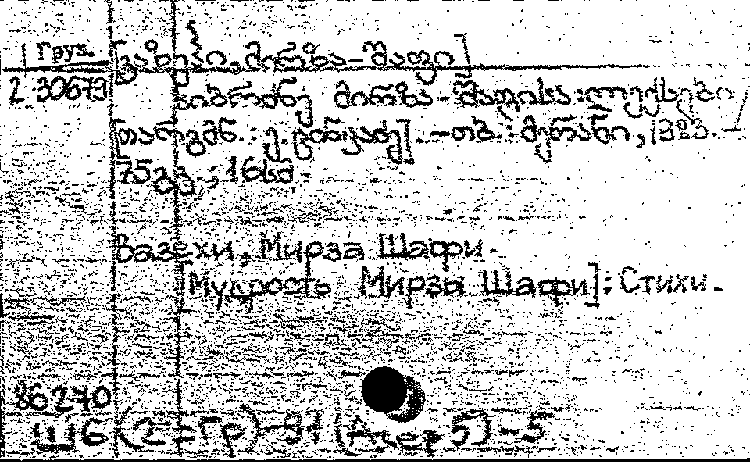 1 Груз.
[ვაზეჰი, მირზა-შაფი]
2.30673
სიბრძნე მირზა-შაფისა: ლექსები/
[თარგმნ.: ე. ]. – თბ.: მერანი, 1983. –
75 გვ.; 16 სმ.
Вазехи, Мирза Шафи.
[Мудрость Мирзы Шафи]: Стихи.
86240
Ш6(2=Гр)-91(Азер5)-5